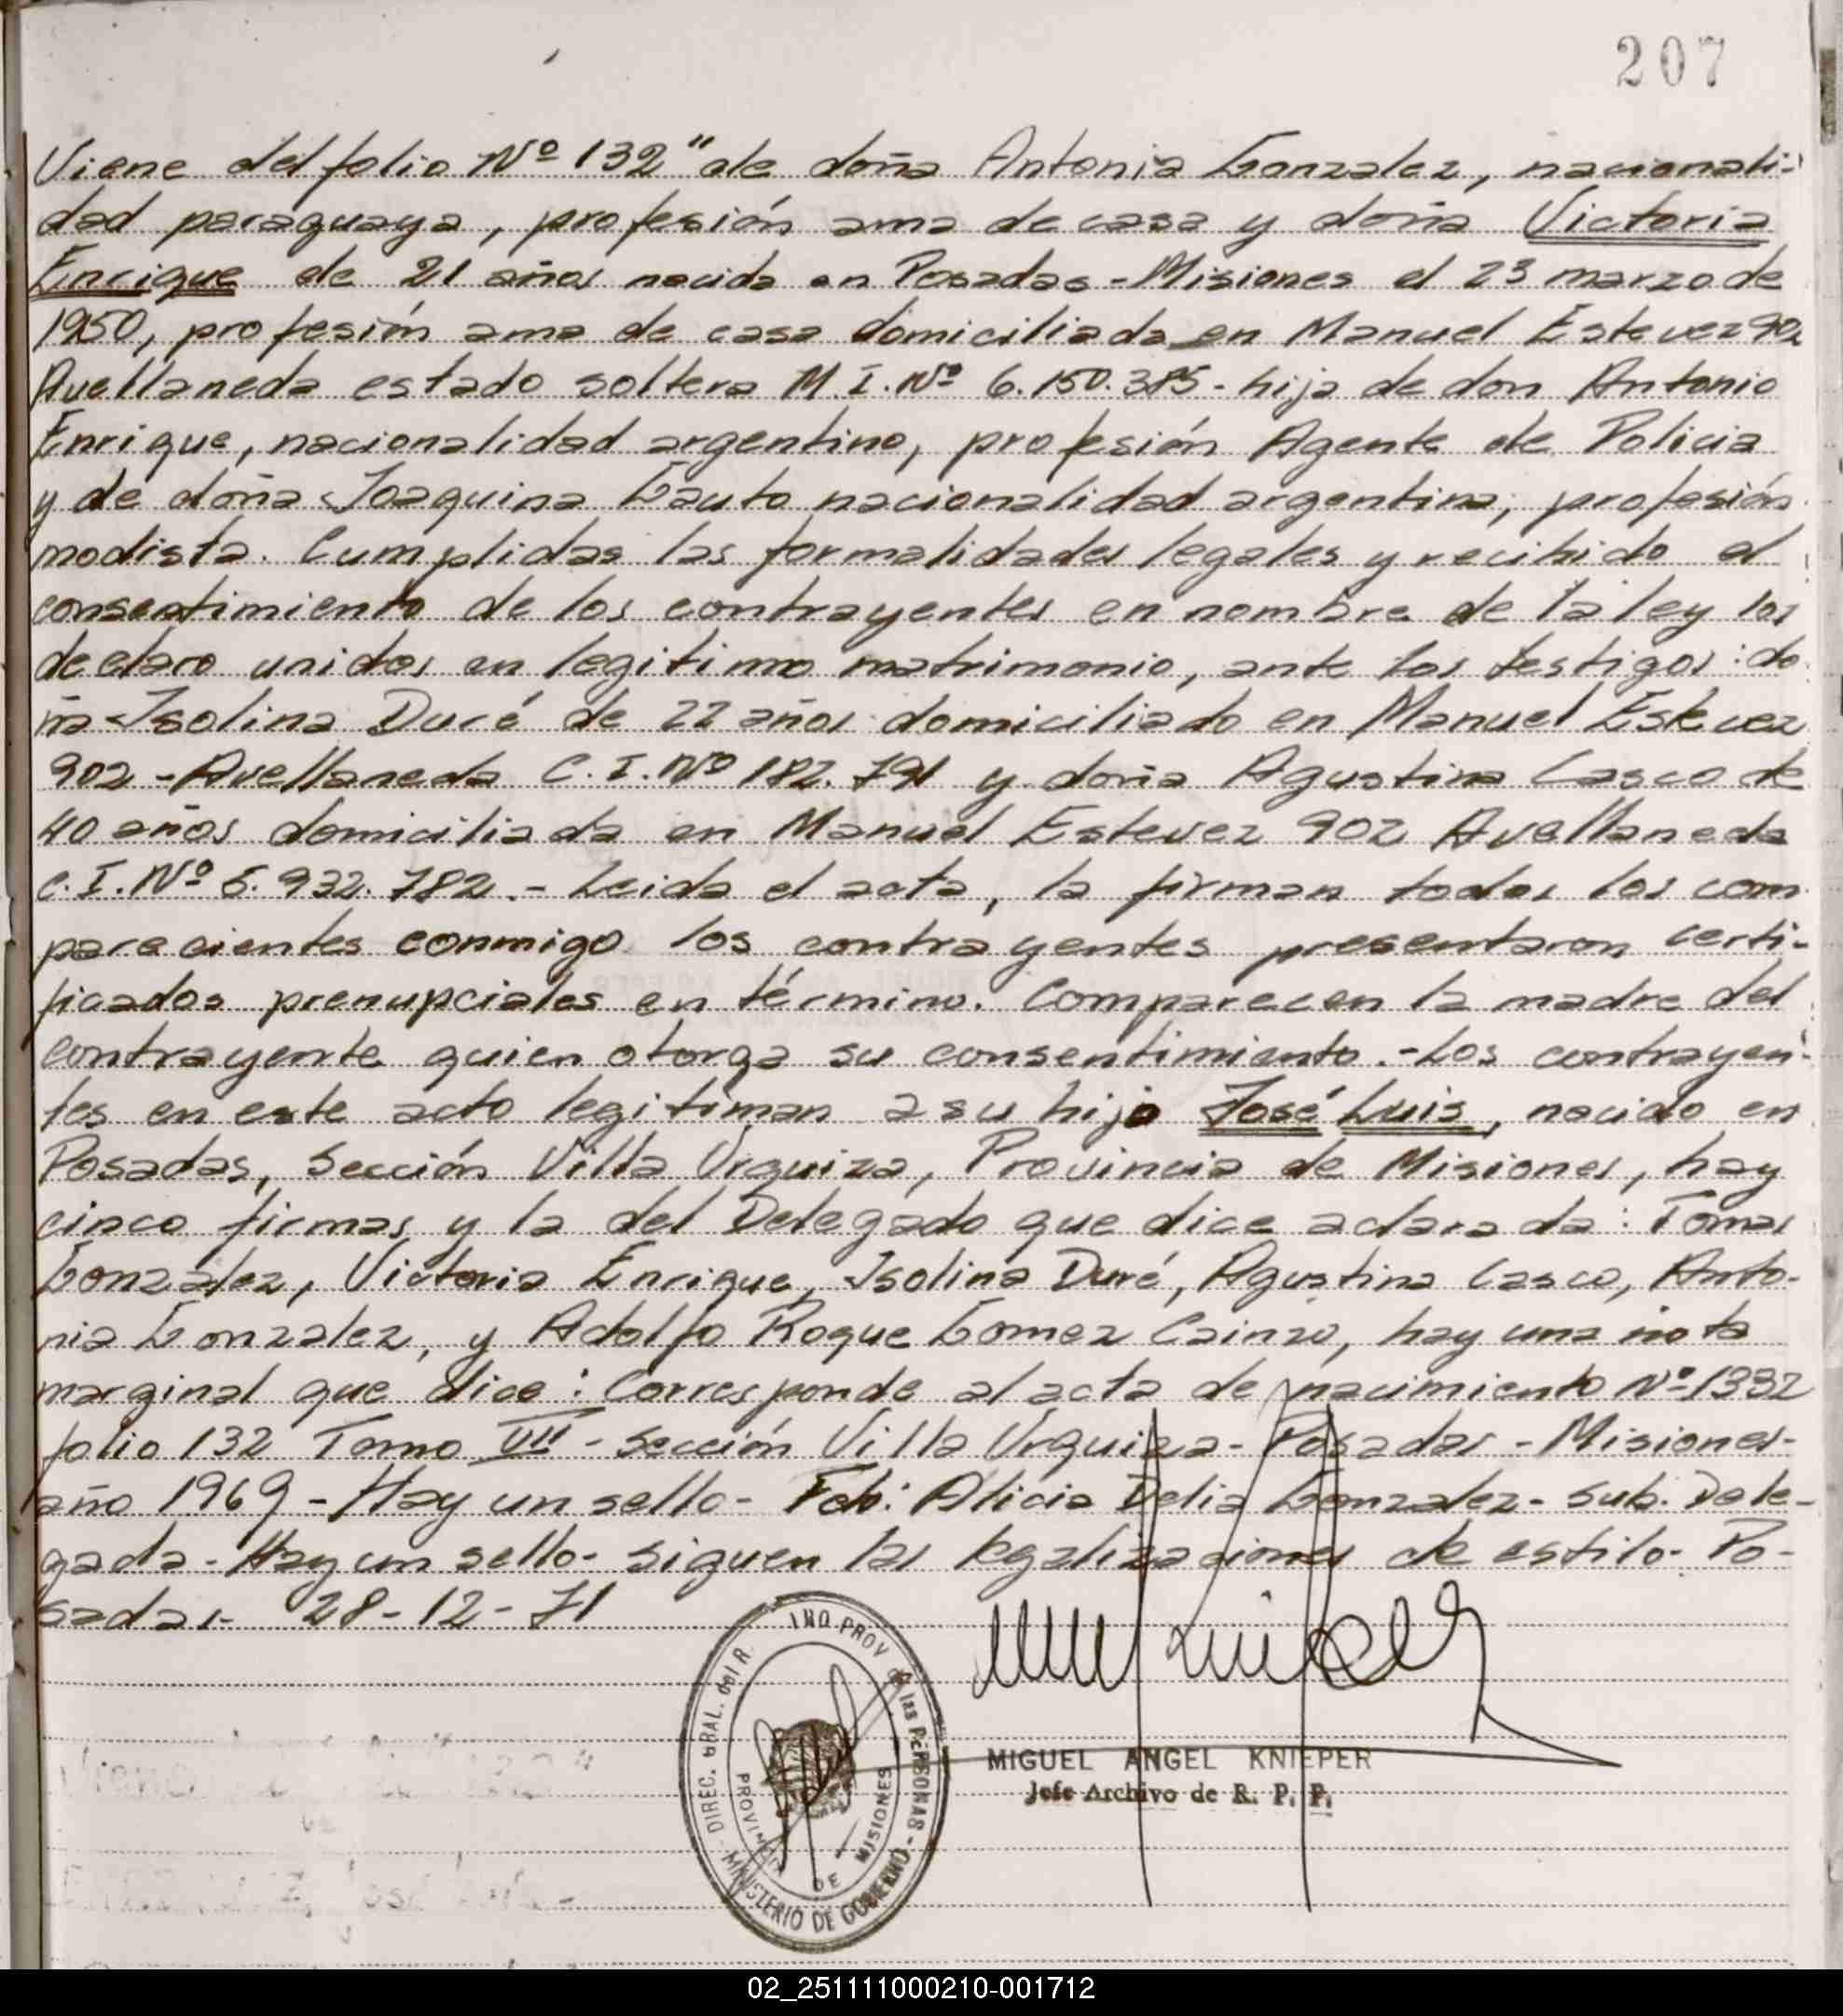 207
Viene del folio Nº 132 " de doña Antonia Gonzalez, nacionali-
dad paraguaya, profesión ama de casa y doña Victoria
Enrique de 21 años nacida en Posadas - Misiones el 23 marzo de
1950, profesión ama de casa domiciliada en Manuel Estevez 902
Avellaneda estado soltera M. I. Nº 6.150.385 - hija de don Antonio
Enrique, nacionalidad argentino, profesión Agente de Policia
y de doña Joaquina Gauto nacionalidad argentina, profesión
modista. Cumplidas las formalidades legales y recibido el
consentimiento de los contrayentes en nombre de la ley los
declaro unidos en legitimo matrimonio, ante los testigos: do
ña Isolina Duré de 22 años domiciliado en Manuel Estevez
902 - Avellaneda C. I. Nº 182.791 y doña Agustina Casco de
40 años domiciliada en Manuel Estevez 902 Avellaneda
C. I. Nº 5.932.782. - Leida el acta, la firman todos los com
parecientes conmigo los contrayentes presentaron certi-
ficados prenupciales en término. Comparecen la madre del
contrayente quien otorga su consentimiento. - Los contrayen-
tes en este acto legitiman a su hijo José Luis, nacido en
Posadas, Sección Villa Urquiza, Provincia de Misiones, hay
cinco firmas y la del Delegado que dice aclarada: Tomas
Gonzalez, Victoria Enrique, Isolina Duré, Agustina Casco, Anto-
nia Gonzalez, y Adolfo Roque Gomez Cainzo, hay una nota
marginal que dice: Corresponde al acta de nacimiento Nº 1332
folio 132 Tomo VII - Sección Villa Urquiza - Posadas - Misiones -
año 1969 - Hay un sello - Fdo: Alicia Delia Gonzalez - Sub. Dele-
gada - Hay un sello - siguen las legalizaciones de estilo - Po-
sadas - 28-12-71
DIREC. GRAL. del R. PROV de las PERSONAS - MINISTERIO DE GOBIERNO
PROVINCIA DE MISIONES
MIGUEL ANGEL KNIEPER
Jefe Archivo de R. P. P.
02_251111000210-001712